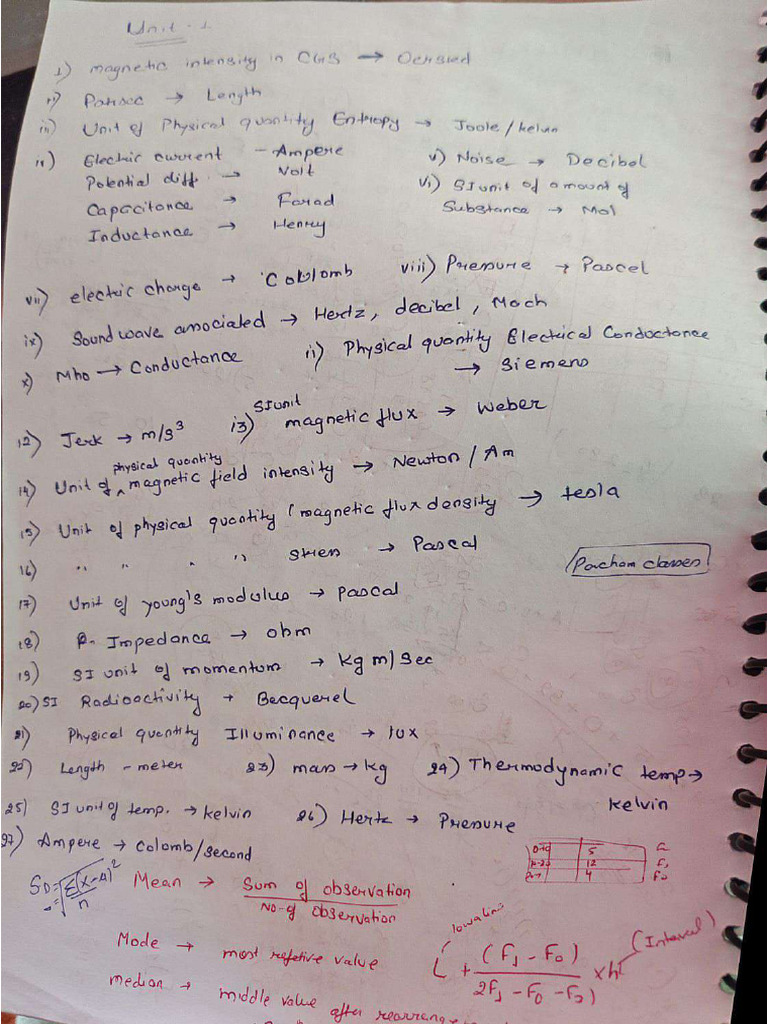 Unit - 1
i) magnetic intensity in CGS → Oersted
ii) Parsec → Length
iii) Unit of Physical quantity Entropy → Joole/kelvin
iv) Electric current - Ampere
Potential diff. → Volt
Capacitance → Farad
Inductance → Henry
v) Noise → Decibel
vi) SI unit of amount of
Substance → Mol
vii) electric charge → Coulomb
viii) Pressure → Pascel
ix) Sound wave associated → Hertz, decibel, Mach
x) Mho → Conductance
11) Physical quantity Electrical Conductance
→ Siemens
12) Jerk → m/s³
13) SI unit magnetic flux → Weber
14) Unit of physical quantity magnetic field intensity → Newton / Am
15) Unit of physical quantity (magnetic flux density → tesla
16) " " " " Stress → Pascal
Parcham classes
17) Unit of young's modulus → pascal
18) P. Impedance → ohm
19) SI unit of momentum → kg m/sec
20) SI Radioactivity → Becquerel
21) Physical quantity Illuminance → lux
22) Length - meter
23) mass → kg
24) Thermodynamic temp →
kelvin
25) SI unit of temp. → kelvin
26) Hertz → Pressure
27) Ampere → Colomb/second
5
12
4
SD = √Σ(X-A)²/n
Mean → Sum of observation
No-of observation
Mode → most repetive value
median → middle value after rearrange
L + (F₁ - F₀) / 2F₁ - F₀ - F₂) × h
(Interval)